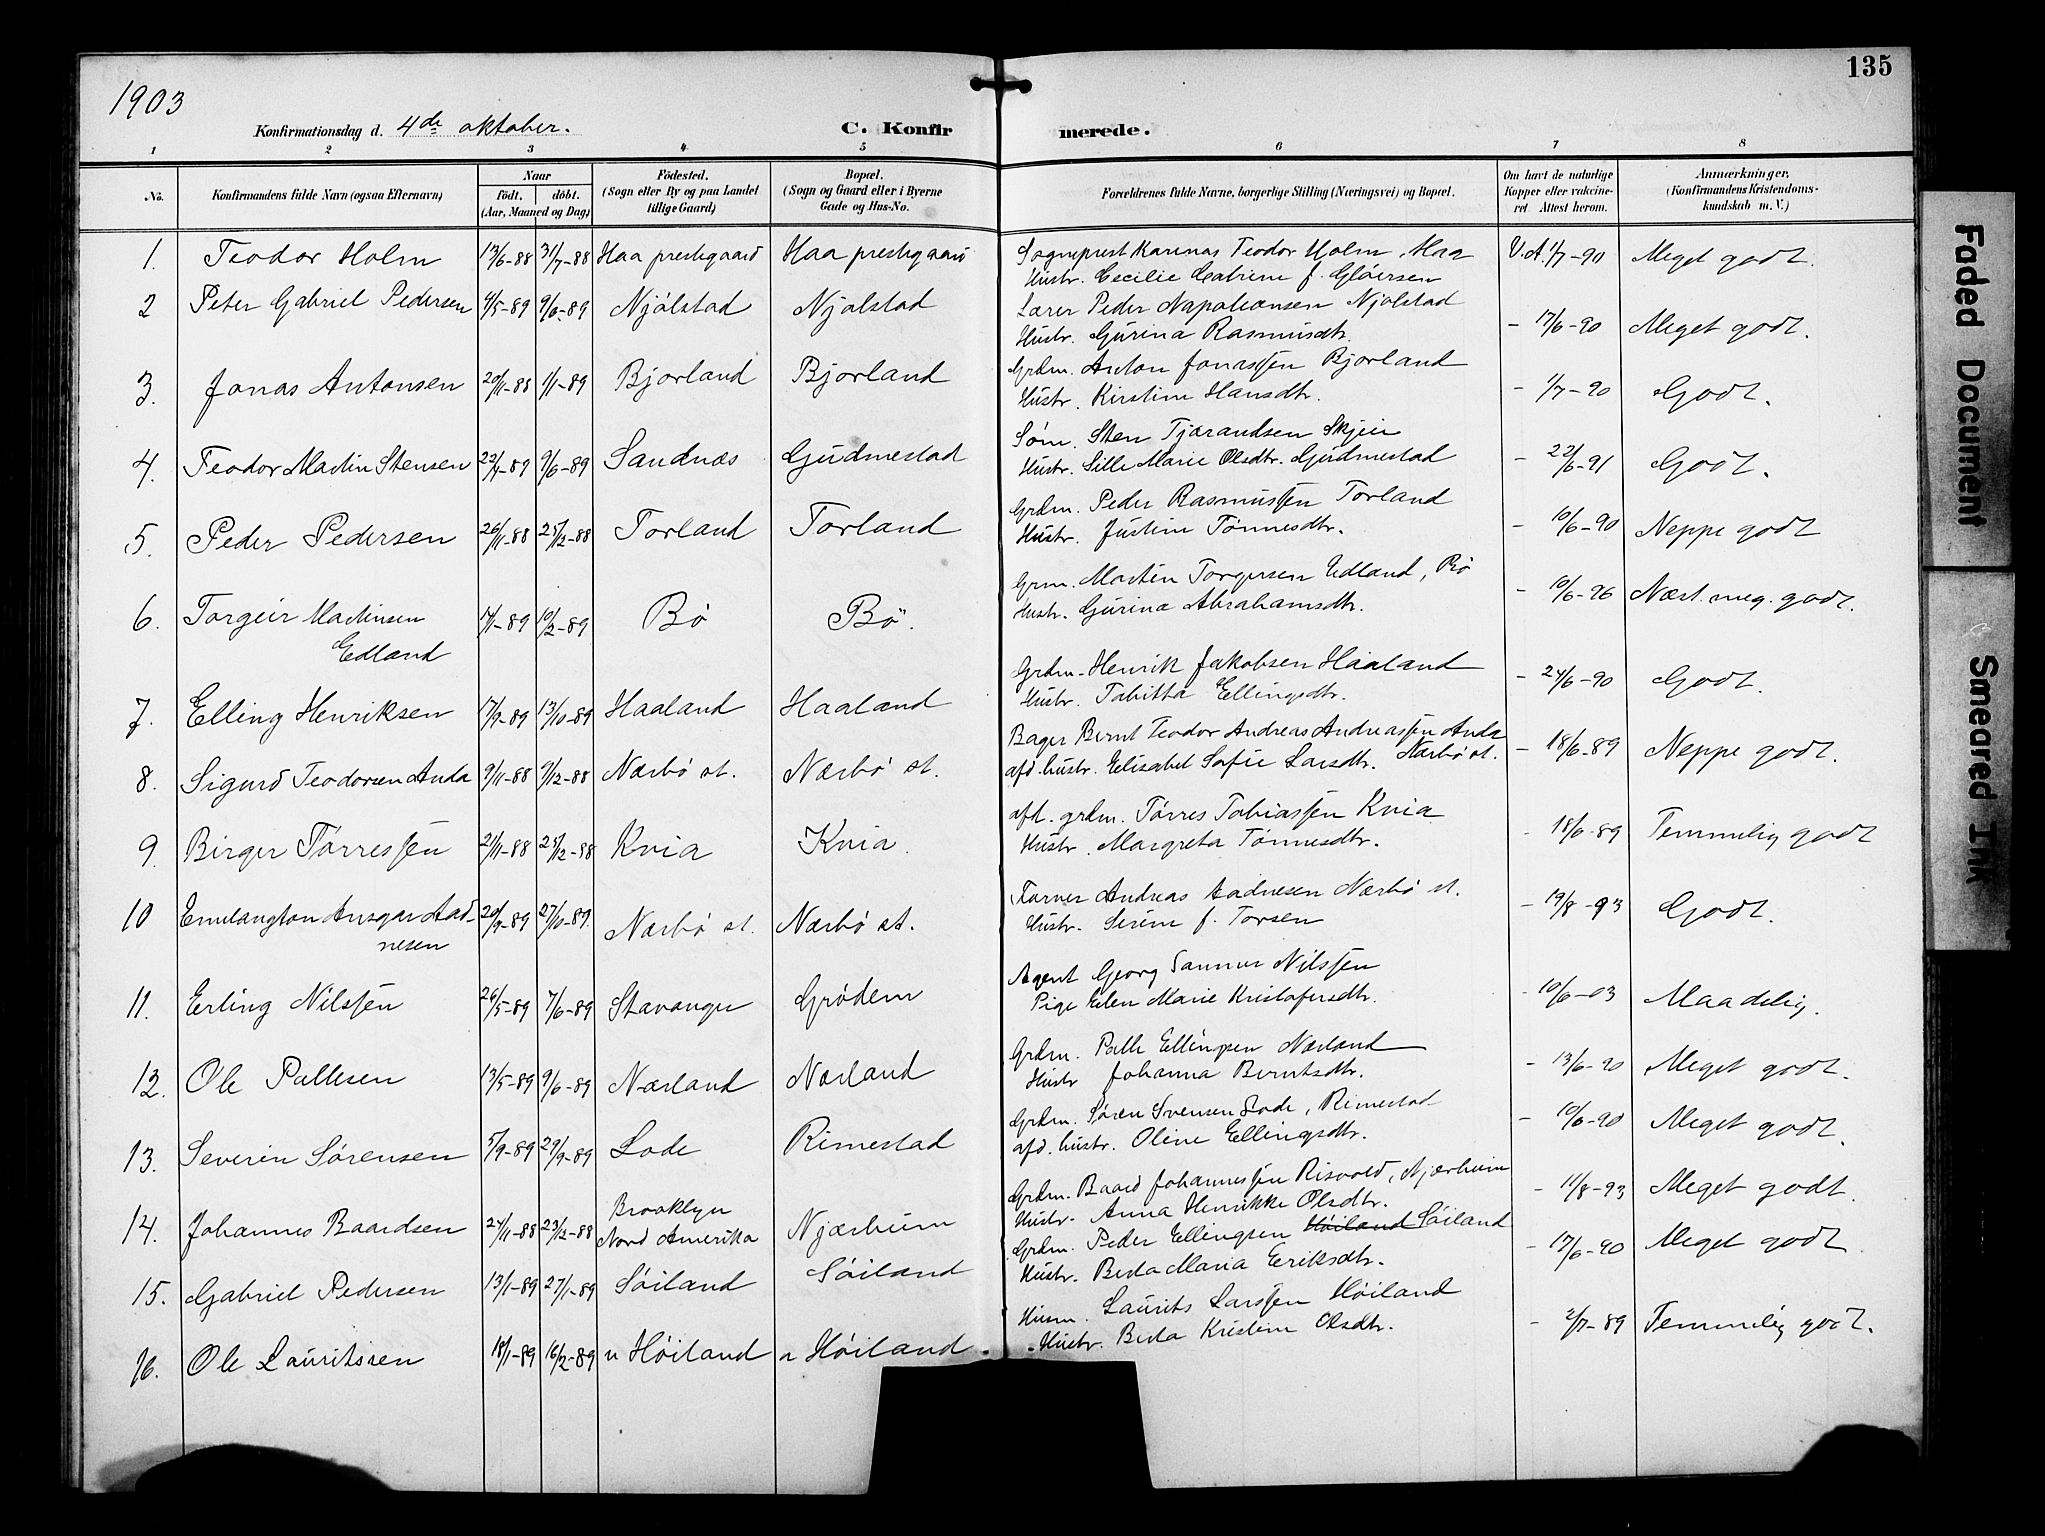 1903
135
Konfirmationsdag d. 4de oktober.
C. Konfirmerede.
1 2 3 4 5 6 7 8
No.
Konfirmandens fulde Navn (ogsaa Efternavn)
Naar
født. døbt.
(Aar, Maaned og Dag)
Fødested.
(Sogn eller By og paa Landet
tillige Gaard)
Bopæl.
(Sogn og Gaard eller i Byerne
Gade og Hus-No.
Forældrenes fulde Navne, borgerlige Stilling (Næringsvei) og Bopæl.
Om havt de naturlige
Kopper eller vakcine-
ret Attest herom.
Anmærkninger.
(Konfirmandens Kristendoms-
kundskab m. V.)
1. Teodor Holm 13/6-88 31/7-88 Haa prestegaard Haa prestegaard
Sogneprest Karenas Teodor Holm, Haa
Hustr. Cecilie Catrine f. Gløersen
V.A. 1/7-90 Meget godt.
2 Peter Gabriel Pedersen 4/5-89 9/6-89 Njølstad Njølstad
Lærer Peder Napoleonsen Njølstad
Hustr. Gurina Rasmusdtr.
- 17/6-90 Meget godt.
3. Jonas Antonsen 20/11-88 1/1-89 Bjorland Bjorland
Grdm. Anton Jonassen Bjorland
Hustr. Kirstine Hansdtr.
- 1/7-90 Godt.
4. Teodor Martin Stensen 22/4-89 9/6-89 Sandnæs Gudmestad
Søm. Sten Tjærandsen Skjeie
Hustr. Sille Marie Olsdtr. Gudmestad
- 22/6-91 Godt.
5. Peder Pedersen 26/11-88 25/12-88 Torland Torland
Grdm. Peder Rasmussen Torland
Hustr. Justine Tønnesdtr.
- 10/6-90 Neppe godt
6. Torgeir Martinsen
Edland 17/1-89 10/2-89 Bø Bø.
Grm. Martin Torgersen Edland, Bø
Hustr. Gurina Abrahamsdtr.
- 10/6-96 Næst. meg. godt.
7. Elling Henriksen 17/9-89 13/10-89 Haaland Haaland
Grdm. Henrik Jakobsen Haaland
Hustr. Tabitta Ellingsdtr.
- 24/6-90 Godt.
8. Sigurd Teodorsen Anda 9/11-88 9/12-88 Nærbø st. Nærbø st.
Bager Bernt Teodor Andreas Andreassen Anda
afd. hustr. Elisabet Sofie Larsdtr. Nærbø st.
- 18/6-89 Neppe godt.
9. Birger Tørressen 21/11-88 25/12-88 Kvia Kvia.
afd. grdm. Tørres Tobiassen Kvia
Hustr. Margreta Tønnesdtr.
- 18/6-89 Temmelig godt
10 Emelangton Ansgar Aad-
nesen 20/9-89 27/10-89. Nærbø st. Nærbø st.
Farver Andreas Aadnesen Nærbø st.
Hustr. Serine f. Torsen
- 19/8-93 Godt.
11. Erling Nilssen 26/5-89 7/6-89 Stavanger Grødem
Agent Georg Nilssen
Pige Elen Marie Kristofersdtr.
- 10/6-03 Maadelig.
12. Ole Pallesen 13/5-89 9/6-89 Nærland Nærland
Grdm. Palle Ellingsen Nærland
Hustr Johanna Berntsdtr.
- 13/6-90 Meget godt.
13. Severin Sørensen 5/9-89 29/9-89 Lode Rimestad
Grdm. Søren Svensen Lode, Rimestad
afd. hustr. Oline Ellingsdtr.
- 10/6-90 Meget godt.
14. Johannes Baardsen 24/11-88 23/12-88 Brooklyn
Nord Amerika Njærheim
Grdm. Baard Johannessen Risvold, Njærheim
Hustr. Anna Henrikke Olsdtr.
- 11/8-93 Meget godt.
15. Gabriel Pedersen 13/1-89 27/1-89 Søiland Søiland
Grdm. Peder Ellingsen Høiland Søiland
Hustr. Berta Maria Eeriksdtr.
- 17/6-90 Meget godt
16. Ole Lauritssen 18/1-89 16/2-89 n Høiland n Høiland.
Husm. Laurits Larssen Høiland
Hustr. Berta Kristine Olsdtr.
- 2/7-89 Temmelig godt.
Faded Document
Smeared Ink